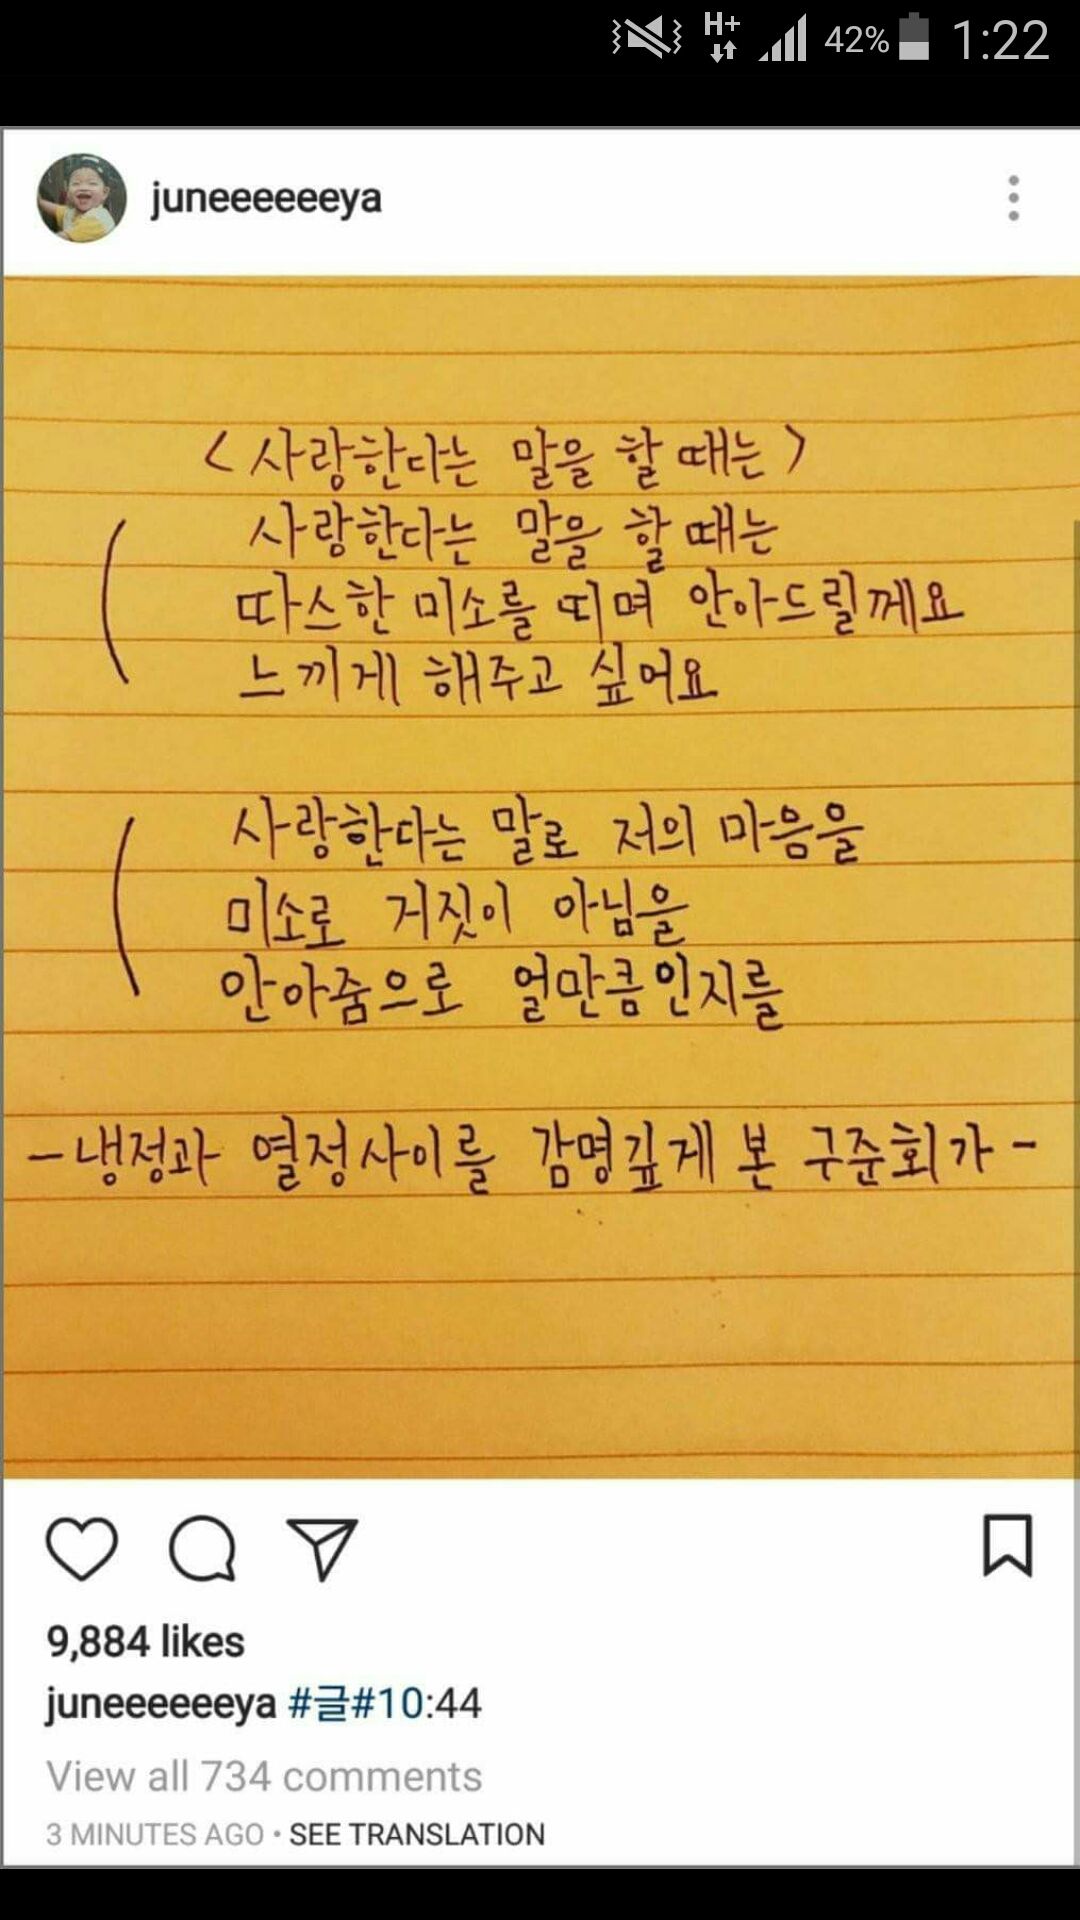 42% 1:22
H+
juneeeeeeya
<사랑한다는 말을 할 때는>
사랑한다는 말을 할 때는
따스한 미소를 띠며 안아드릴께요
느끼게 해주고 싶어요
사랑한다는 말로 저의 마음을
미소로 거짓이 아님을
안아줌으로 얼만큼인지를
-냉정과 열정사이를 감명깊게 본 구준회가-
9,884 likes
juneeeeeeya #글#10:44
View all 734 comments
3 MINUTES AGO • SEE TRANSLATION